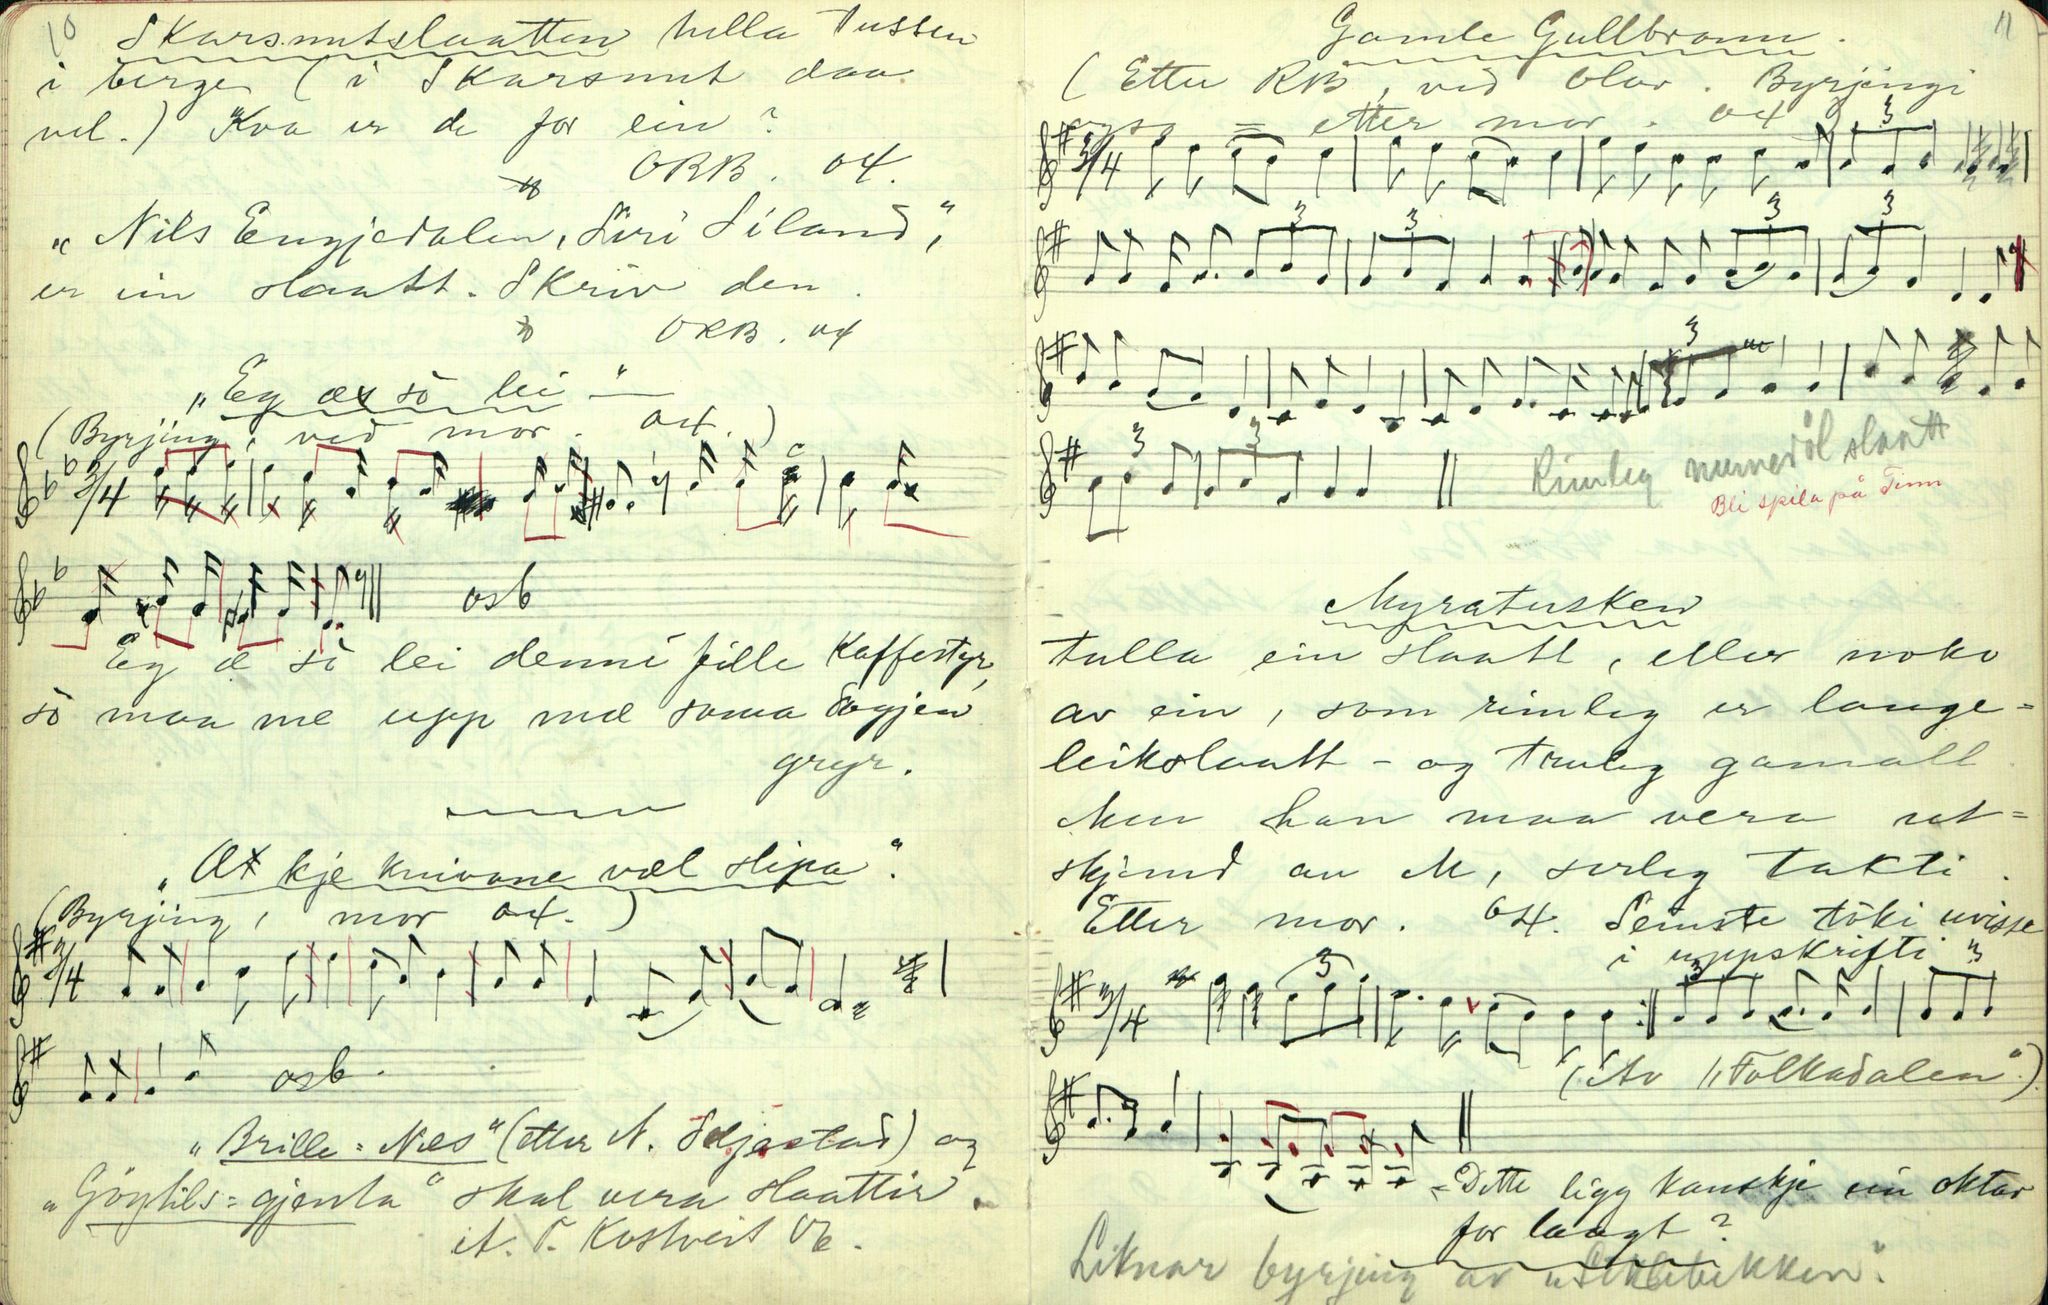 10
Skarsnutslaatten tulla Tussen
i berge (i Skarsnut daa
vel.) Kva er de for ein?
ORB. 04.
"Nils Engjedalen, Siri Siland",
er ein slaatt. Skriv den.
ORB. 04
"Eg æ so lei" —
(Byrjing, ved mor. 04.)
3/4
osb
Eg æ so lei denni fille Kaffestyr,
so maa me upp me soma Dagjen
gryr.
"Æ kje knivane væl slipa".
(Byrjing, mor 04.)
3/4
osb.
"Brille-Nils" (etter N. Seljestad) og
"Göytils-gjenta" skal vera slaattir.
A. T. Kostveit 06.
11
Gamle Gullbrann.
(Etter RB, ved Olav. Byrjingi
= etter mor. 04
3/4 3
3 3 3 3
3
3 3
Rimleg numedöl slaatt
Bli spila på Tinn
Myratusken
tulla ein slaatt, eller noko
av ein, som rimleg er lange-
leikslaatt - og truleg gamall.
Men han maa vera ut-
skjemd av M, serleg takti.
Etter mor. 04. Seinste töki uvisse
i uppskrifti
3/4 3 3 3
(Av "Folkadalen".)
Dette ligg kanskje ein oktav
for laagt?
Liknar byrjing av